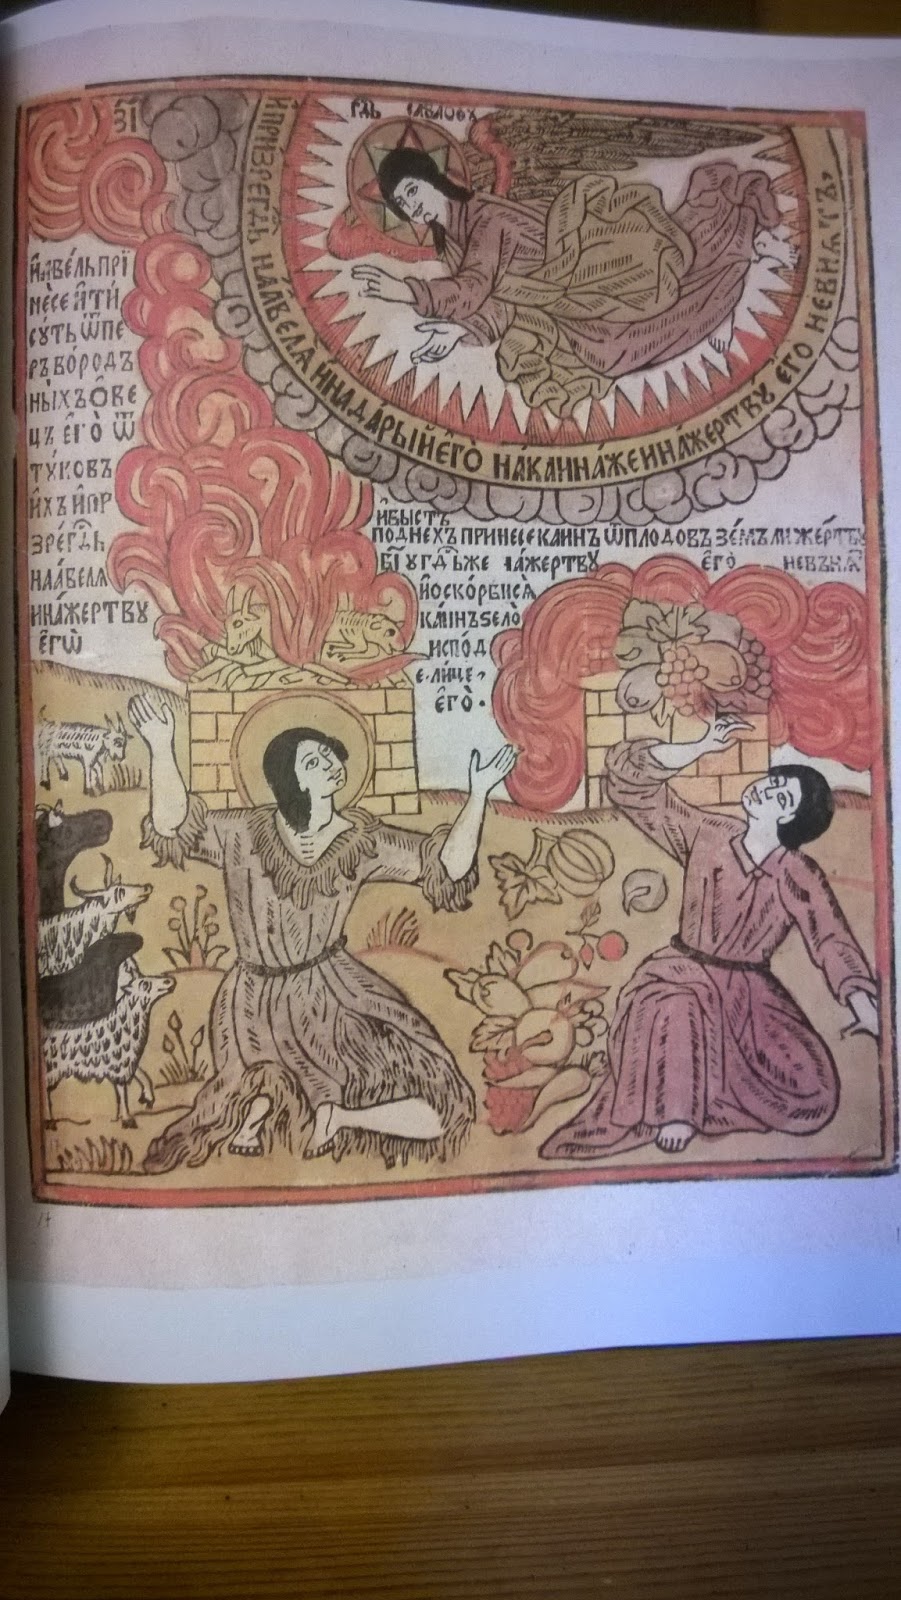 ЗІ
Гд҃ь саваоѳъ
И҆призрегд҃ь наавела инадарыйегѡ̀ накаинажеинажертвꙋ̀ его невнѧтъ,
И҆а́вель при
несе ѿ
сꙋть ѿпе
рвородъ
ныхъ ѻ҆ве
цъ е҆гѡ̀ ѿ
тꙋковъ
и҆хъ и҆при
зрегд҃ь
наа́веля
ина́жертвꙋ
е҆гѡ̀
И҆бысть
поднехъ принесе каинъ ѿплодовъ земъли жертвꙋ
бг҃ꙋ гд҃ь же на жертвꙋ е҆гѡ̀ невънѧ
и҆оскорбисѧ
каинъ ѕело̀
испод
е·лице·
е҆го̀·
17